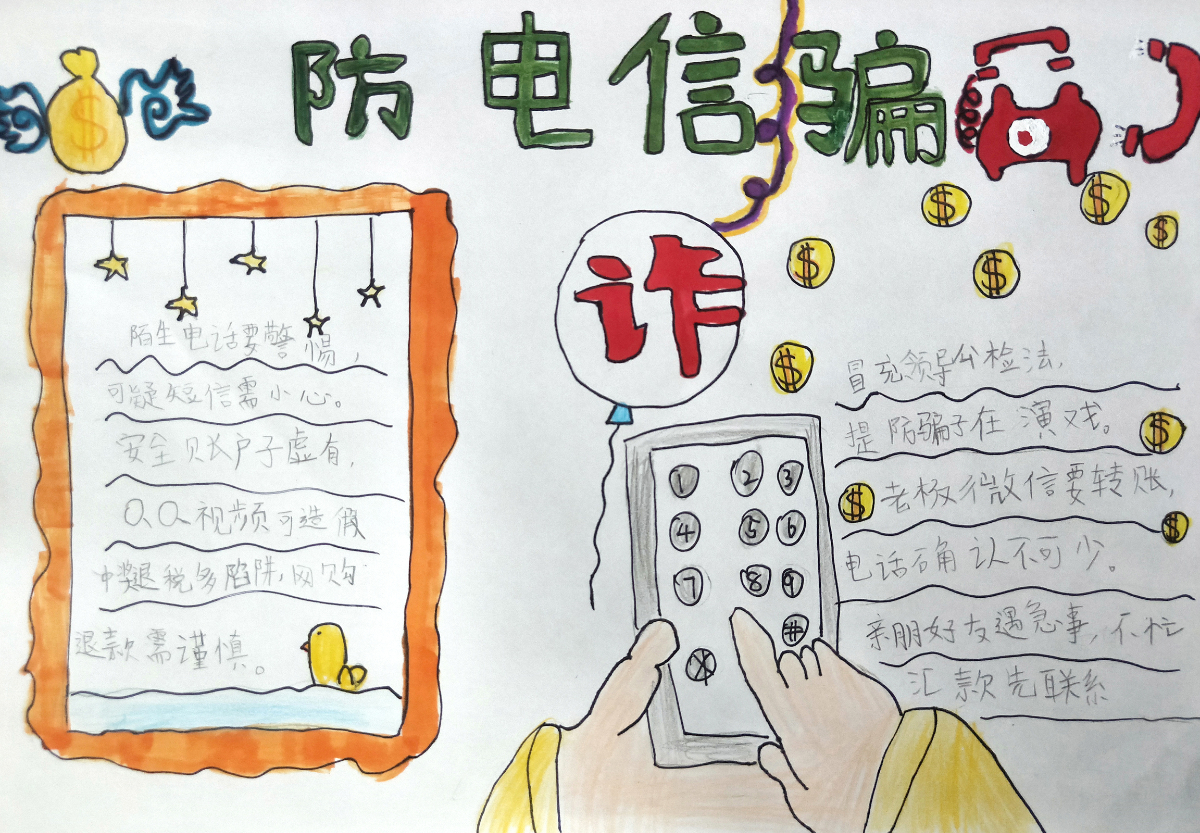 防电信骗
诈
陌生电话要警惕，
可疑短信需小心。
安全账户子虚有，
QQ视频可造假
中奖退税多陷阱，网购
退款需谨慎。
冒充领导公检法，
提防骗子在演戏。
老板微信要转账，
电话确认不可少。
亲朋好友遇急事，不忙
汇款先联系
1 2 3
4 5 6
7 8 9
#
*
$
$
$
$
$
$
$
$
$
$